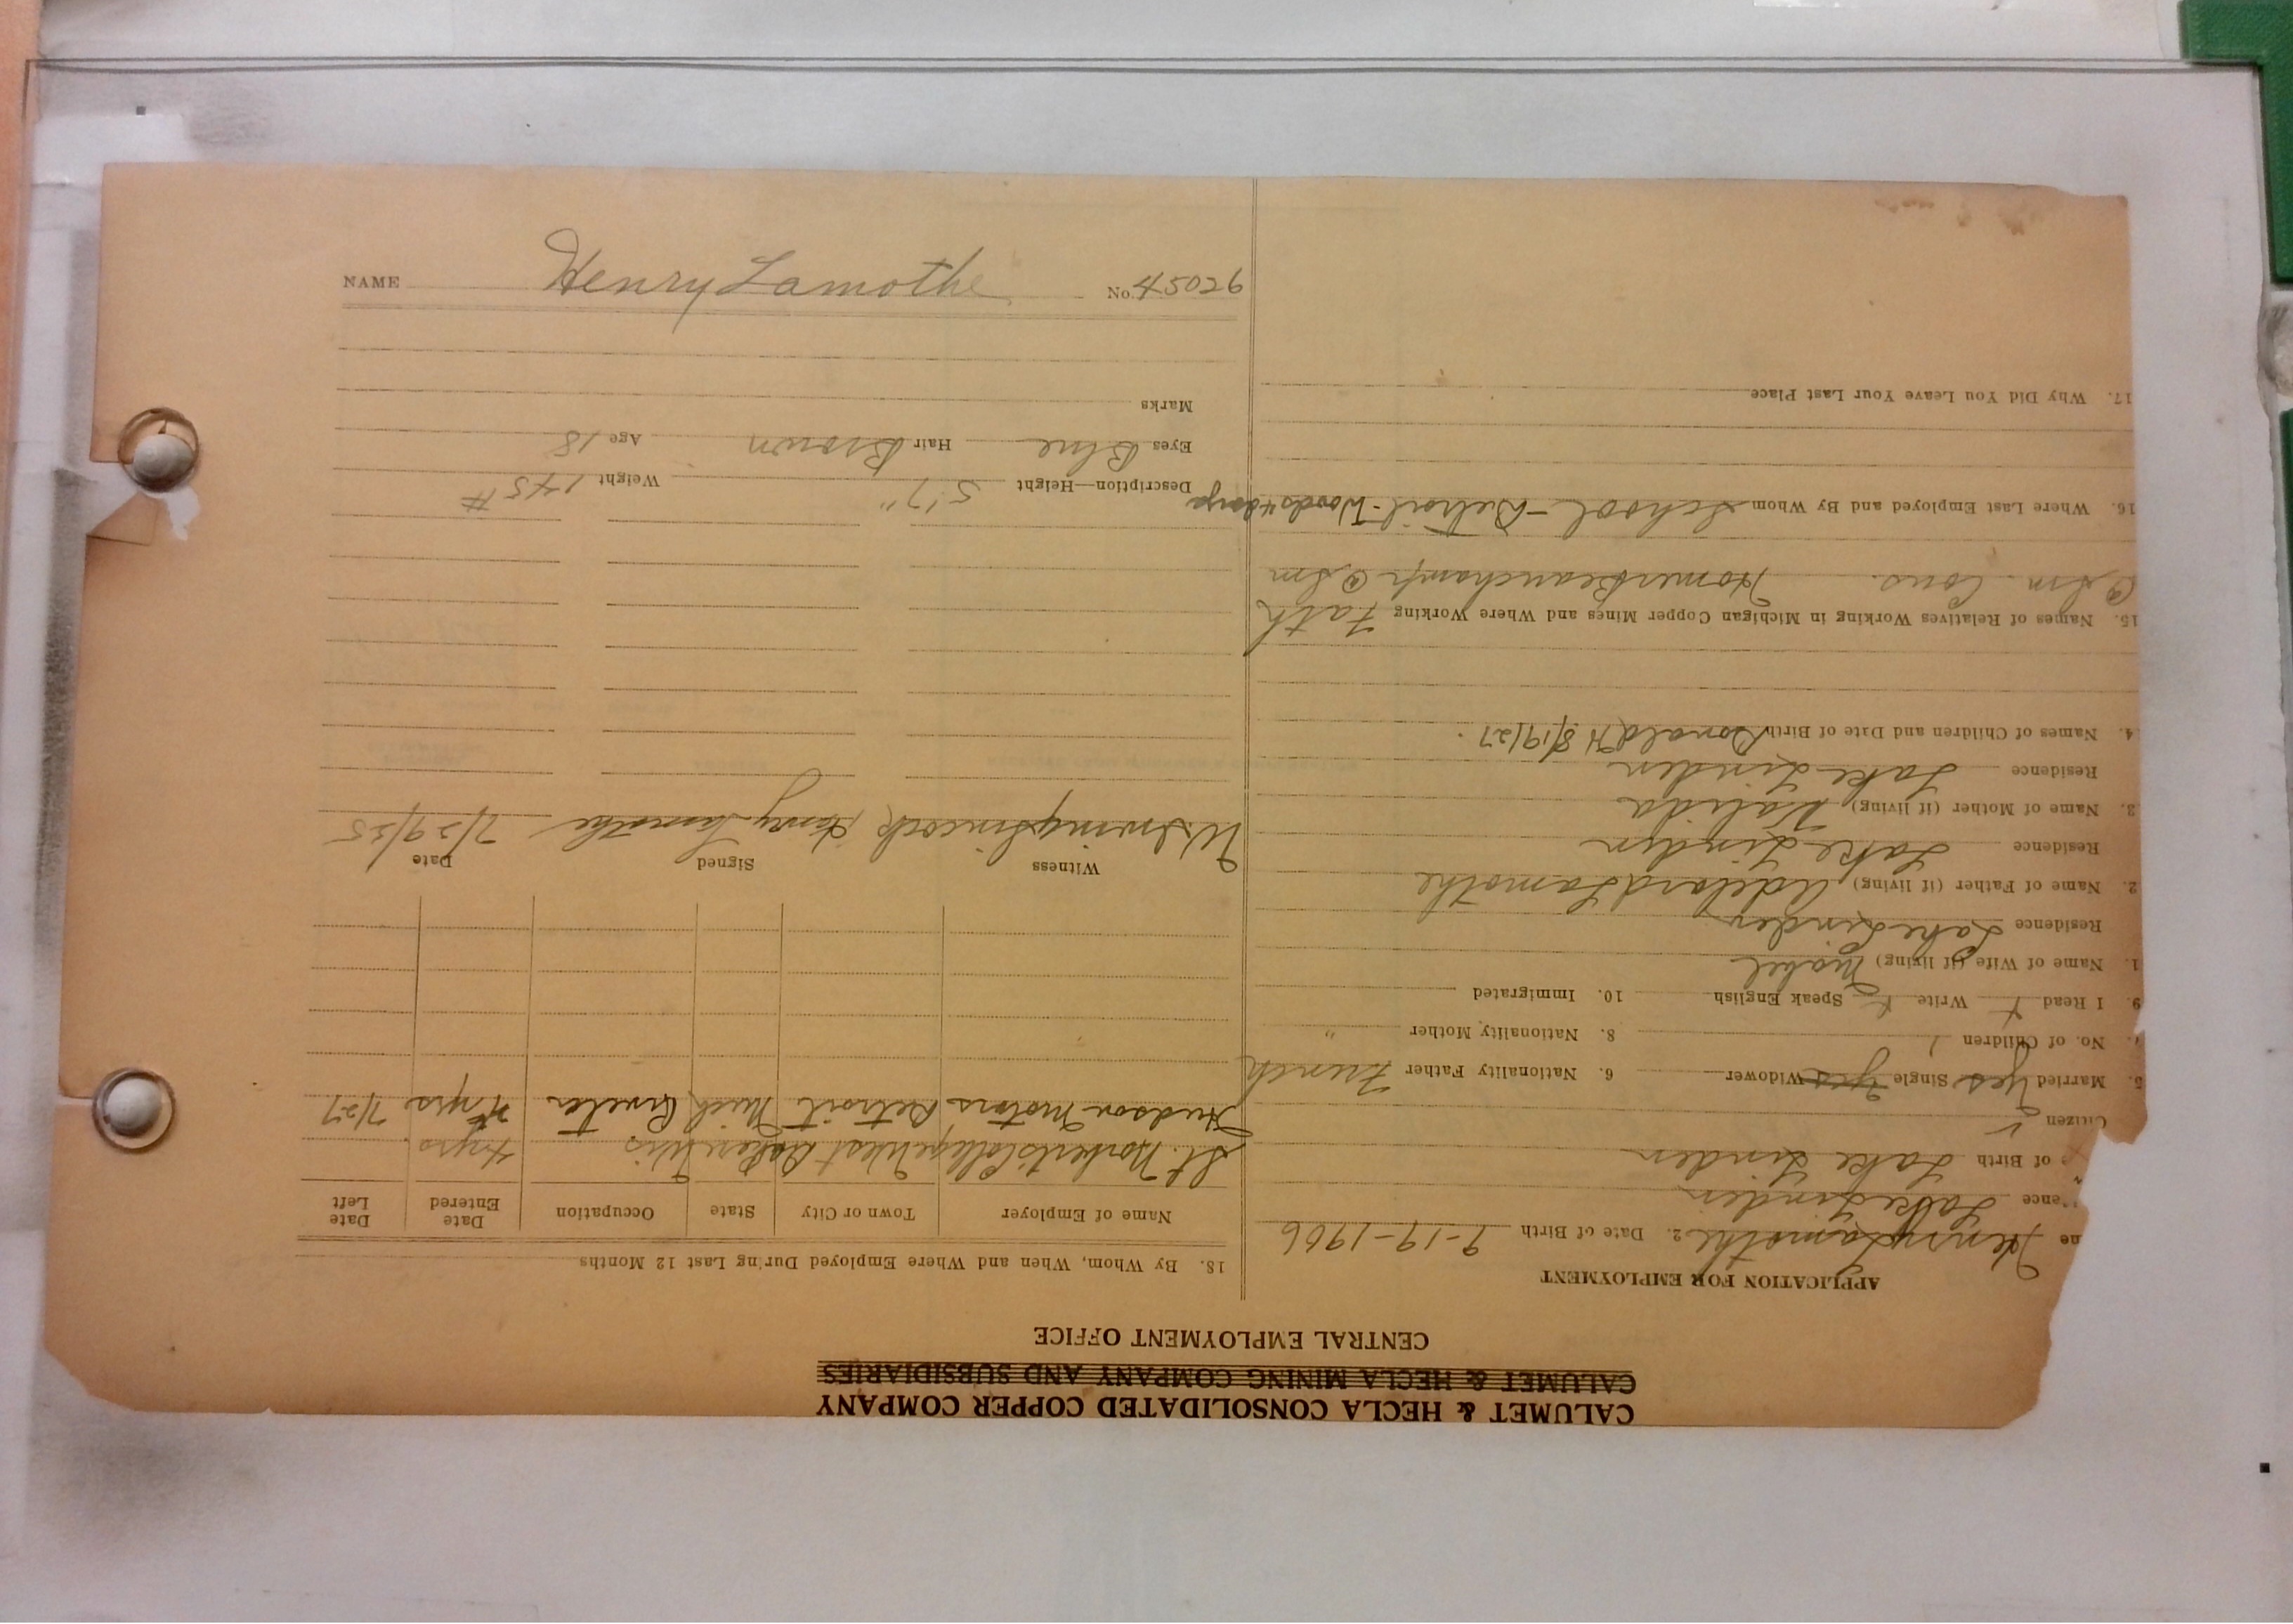 CALUMET & HECLA CONSOLIDATED COPPER COMPANY
CALUMET & HECLA MINING COMPANY AND SUBSIDIARIES
CENTRAL EMPLOYMENT OFFICE
APPLICATION FOR EMPLOYMENT
ne Henry Lamothe 2. Date of Birth 9-19-1906
ence Lake Linden
of Birth Lake Linden
Citizen
5. Married Yes Single Yes Widower 6. Nationality Father French
No. of Children 1 8. Nationality Mother "
9. I Read Write Speak English 10. Immigrated
1. Name of Wife (if living) Mabel
Residence Lake Linden
2. Name of Father (if living) Adelard Lamothe
Residence Lake Linden
3. Name of Mother (if living) Valida
Residence Lake Linden
4. Names of Children and Date of Birth Donald H 8/19/27
15. Names of Relatives Working in Michigan Copper Mines and Where Working Fath
@ Sm. Cons. Homer Beauchamp @ Sm
16. Where Last Employed and By Whom School - Detroit - Woods
17. Why Did You Leave Your Last Place
18. By Whom, When and Where Employed During Last 12 Months
Name of Employer Town or City State Occupation Date Entered Date Left
St. Norberts College West Wis 4 yrs.
Hudson Motors Detroit Mich Riveter yrs 7/27
Witness Signed Date
W. Irving Sincock Henry Lamothe 7/29/25
Description—Height 5'7" Weight 145 #
Eyes Blue Hair Brown Age 18
Marks
NAME Henry Lamothe No. 45026